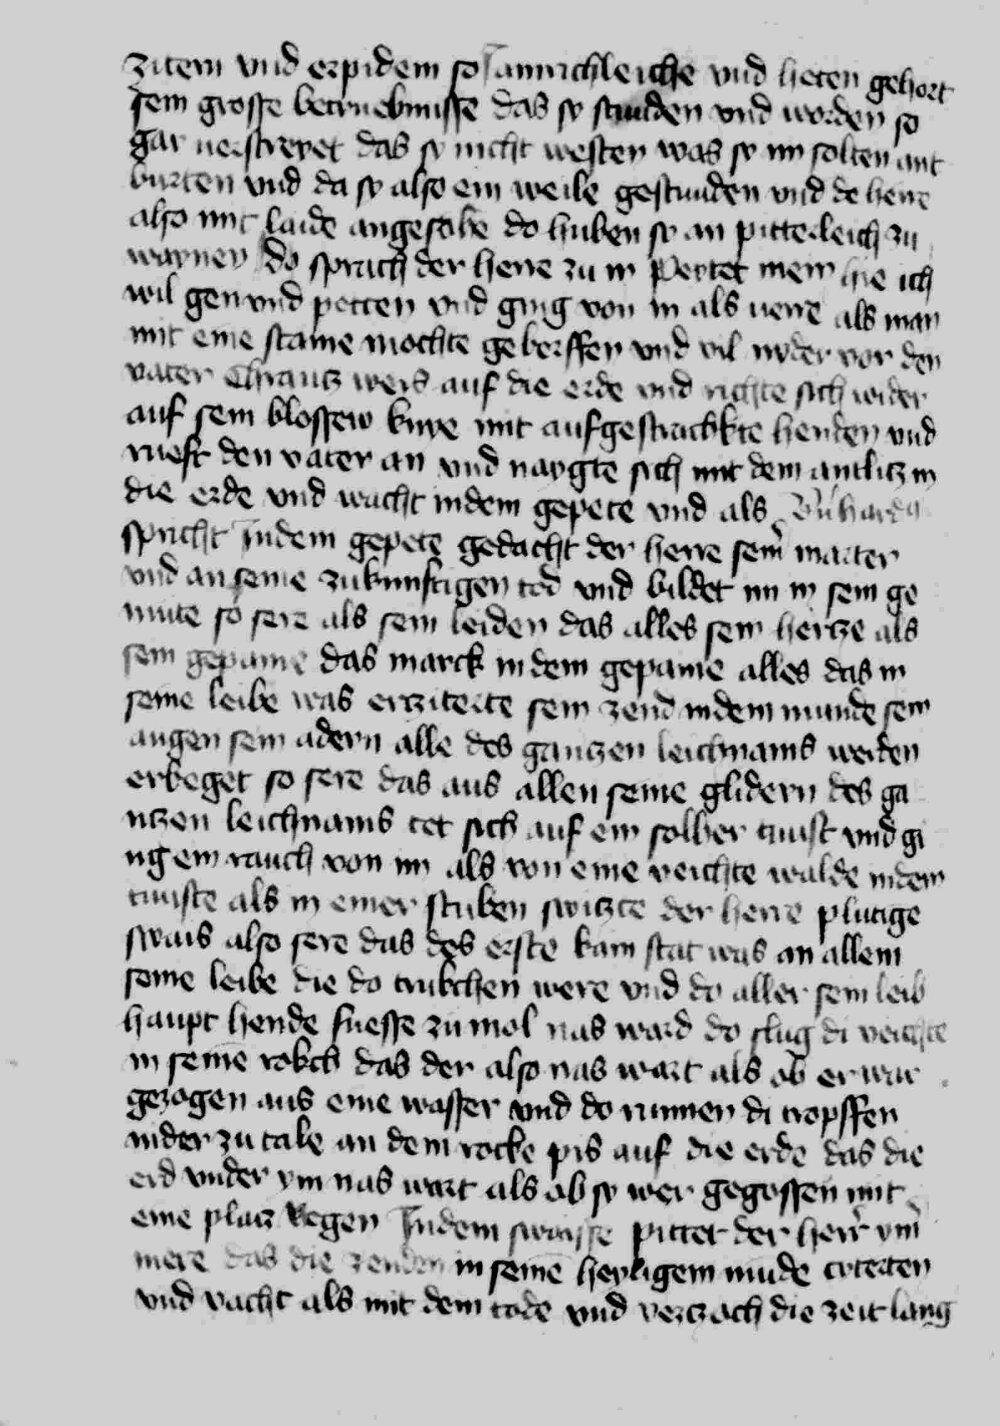 zitern vnd erpidem so iamrichleiche vnd heten gehort
sein grosse betruebnusse das sy stunden vnd worden so
gar verstreyet das sy nicht westen was sy im solten ant
burten vnd da sy also ein weile gestunden vnd de herre
also mit laide angesahe do huben sy an pitterleich zu
waynen do sprach der herre zu in peytet mein hie ich
wil gen vnd petten vnd ging von in als verre als man
mit eine staine mochte geberffen vnd vil nyder vor den
vater chrautz weis auf die erde vnd richte sich wider
auf sein blossew knye mit aufgestrackte henden vnd
rueft den vater an vnd naygte sich mit dem antlitz in
die erde vnd wacht indem gepete vnd als
spricht Indem gepete gedacht der herre seiner marter
vnd an seine zukunftigen tod vnd bildet im in sein ge
mute so sere als sein leiden das alles sein hertze als
sein gepaine das marck in dem gepaine alles das in
seine leibe was erzitterte sein zend indem munde sein
augen sein adern alle des gantzen leichnams werden
erbeget so sere das aus allen seine glidern des ga
ntzen leichnams tet sich auf ein solher tunst vnd gi
ng ein rauch von im als von eine veichte walde indem
tunste als in einer stuben switzte der herre plutige
swais also sere das des erste kain stat was an allem
seine leibe die do trukchen were vnd do aller sein leib
haupt hende fuesse zu mol nas ward do slug di veichte
in seinē rokch das der also nas wart als ob er war
gezogen aus eine wasser vnd do runnen di tropffen
nider zu tale an dem rocke pis auf die erde das die
erd vnder ym nas wart als ob sy wer gegossen mit
eine platz Regen Indem swaisse pittet der herr ym
mere das die zenden in seinē heyligem mūde cyterten
vnd vacht als mit dem tode vnd vertzoch die zeit lang